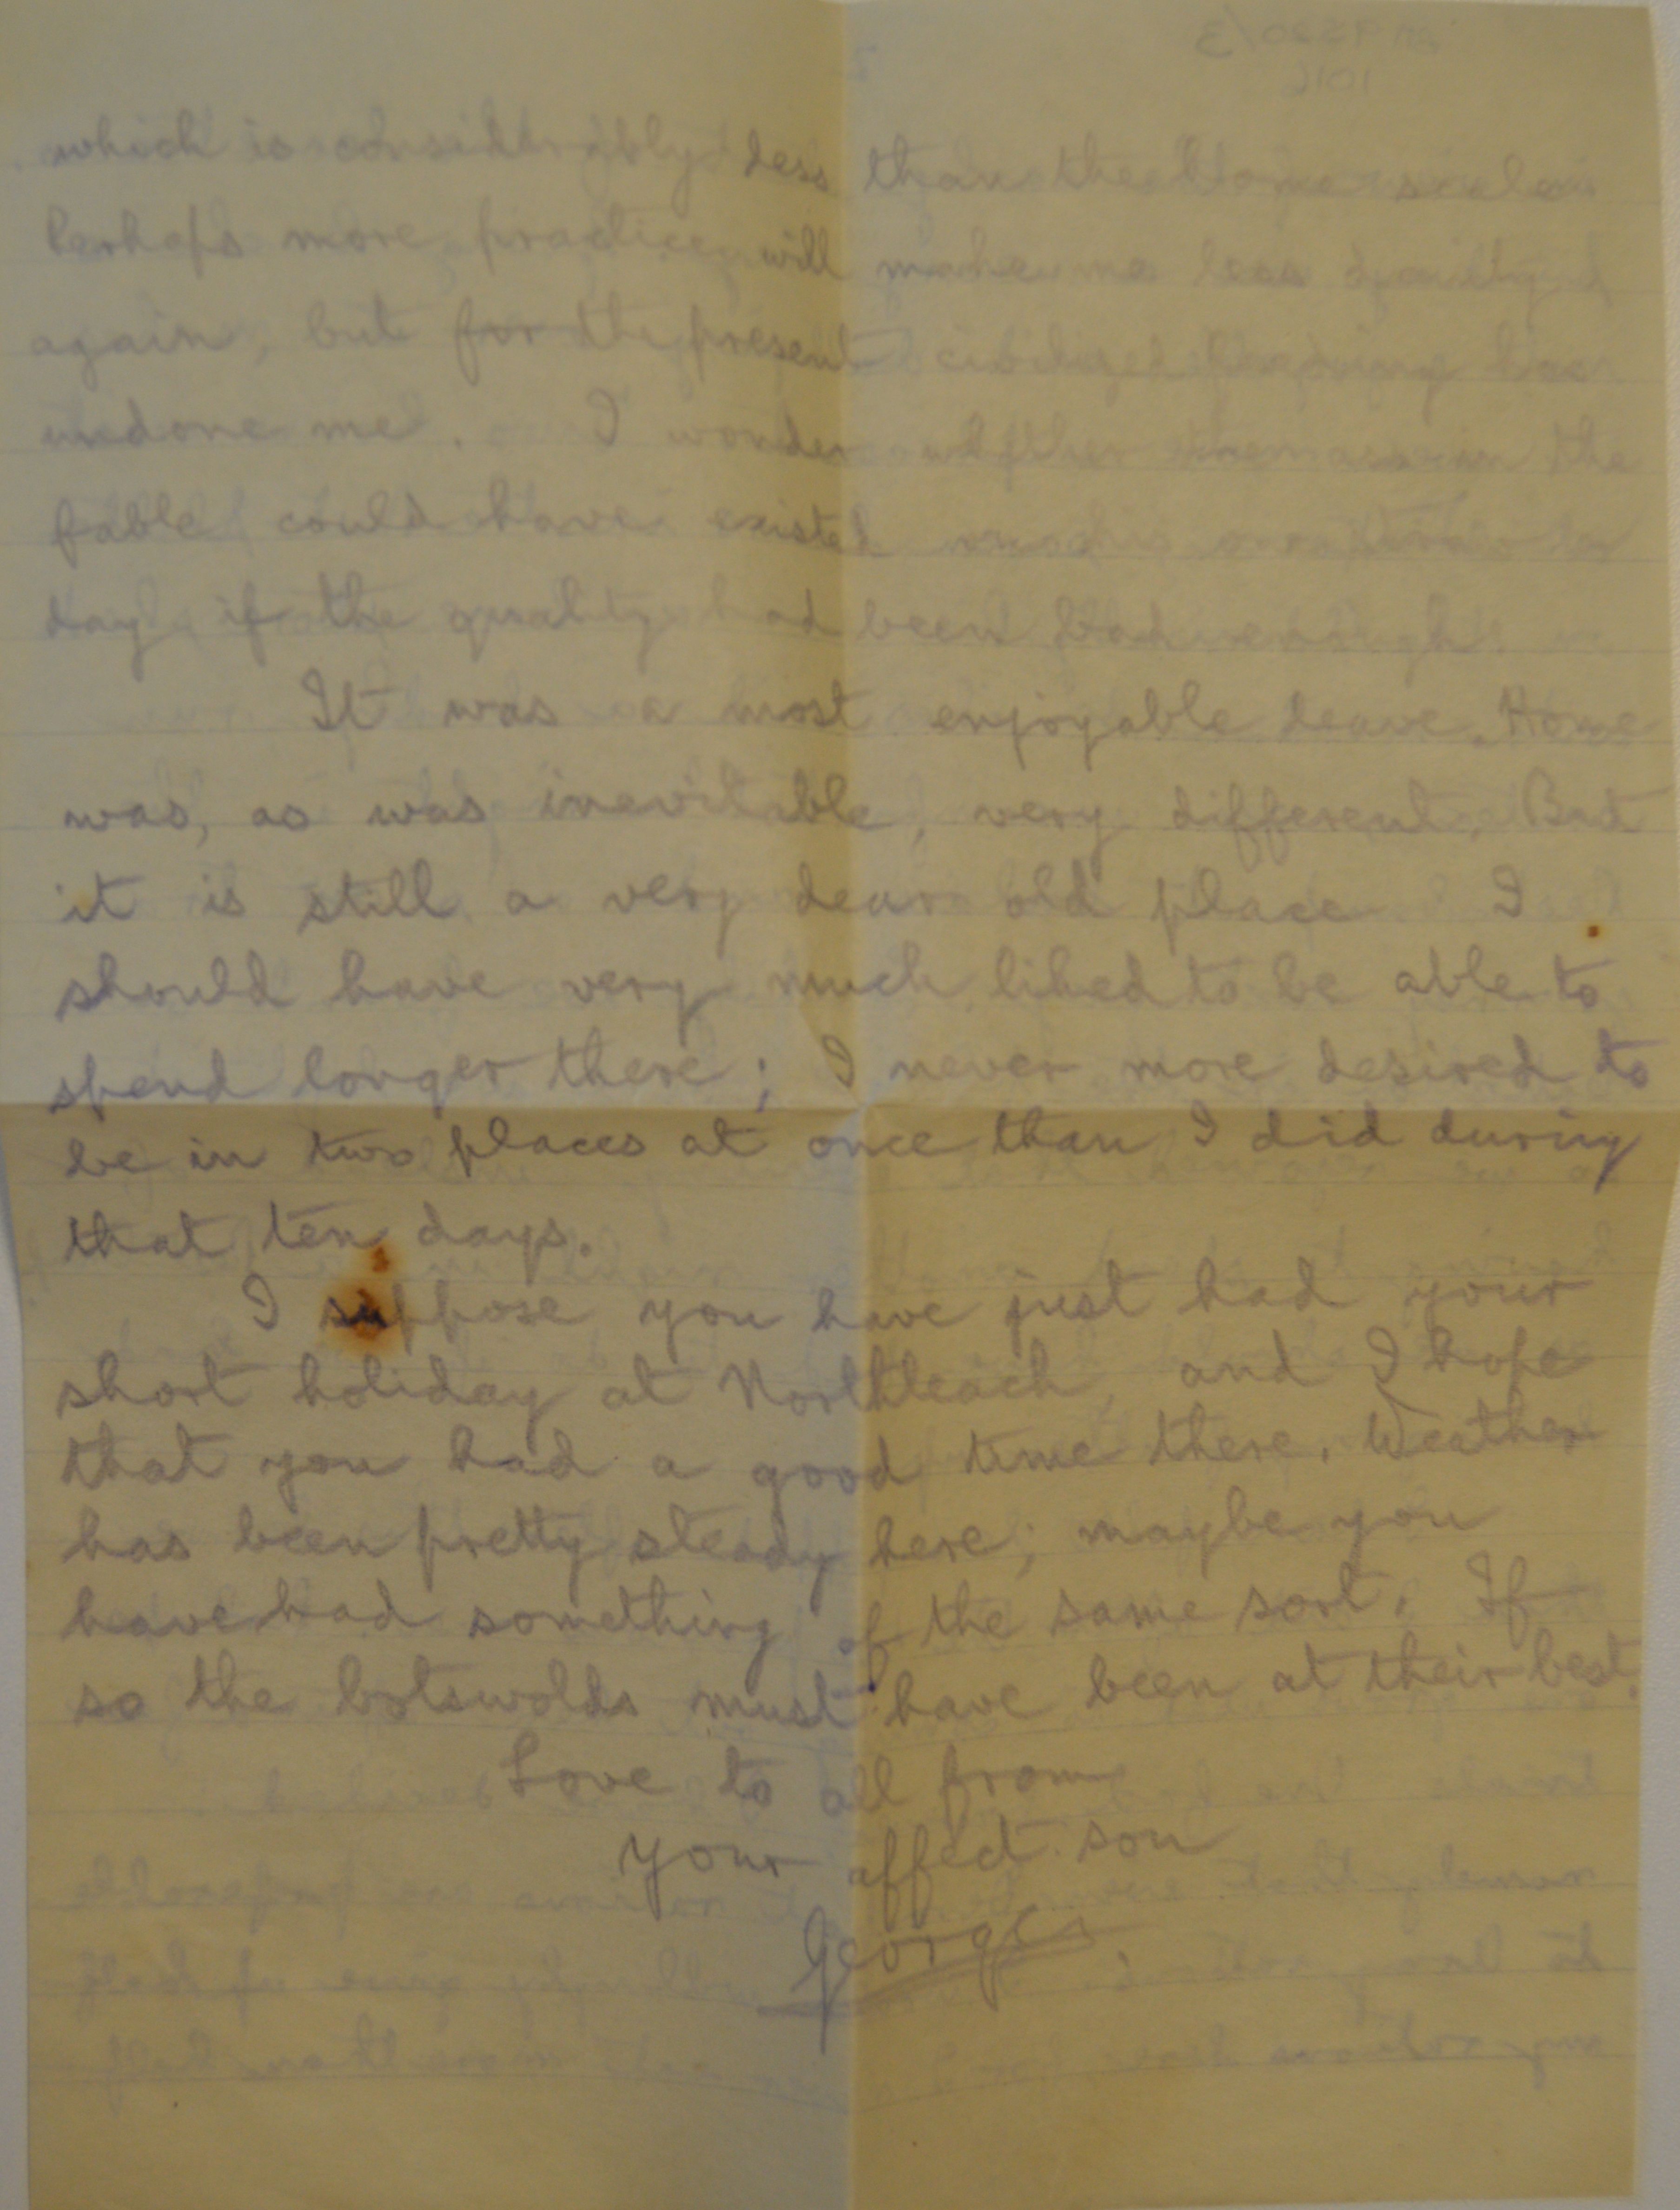 which is considerably less than the Home scale
Perhaps more practice will make me less
again, but for the present civilized has
undone me. I wonder whether the
fable could have existed
day, if the quality had been bad enough.
It was a most enjoyable leave. Home
was, as was inevitable, very different. But
it is still a very dear old place I
should have very much liked to be able to
spend longer there; I never more desired to
be in two places at once than I did during
that ten days.
I suppose you have just had your
short holiday at Northleach, and I hope
that you had a good time there. Weather
has been pretty steady here; maybe you
have had something of the same sort. If
so the Cotswolds must have been at their best.
Love to all from
your affect. son
George